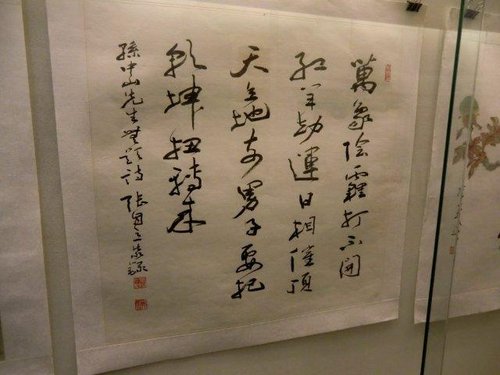 萬象陰霾打不開
紅羊劫運日相催頂
天立地奇男子要把
乾坤扭轉來
孫中山先生無題詩 張